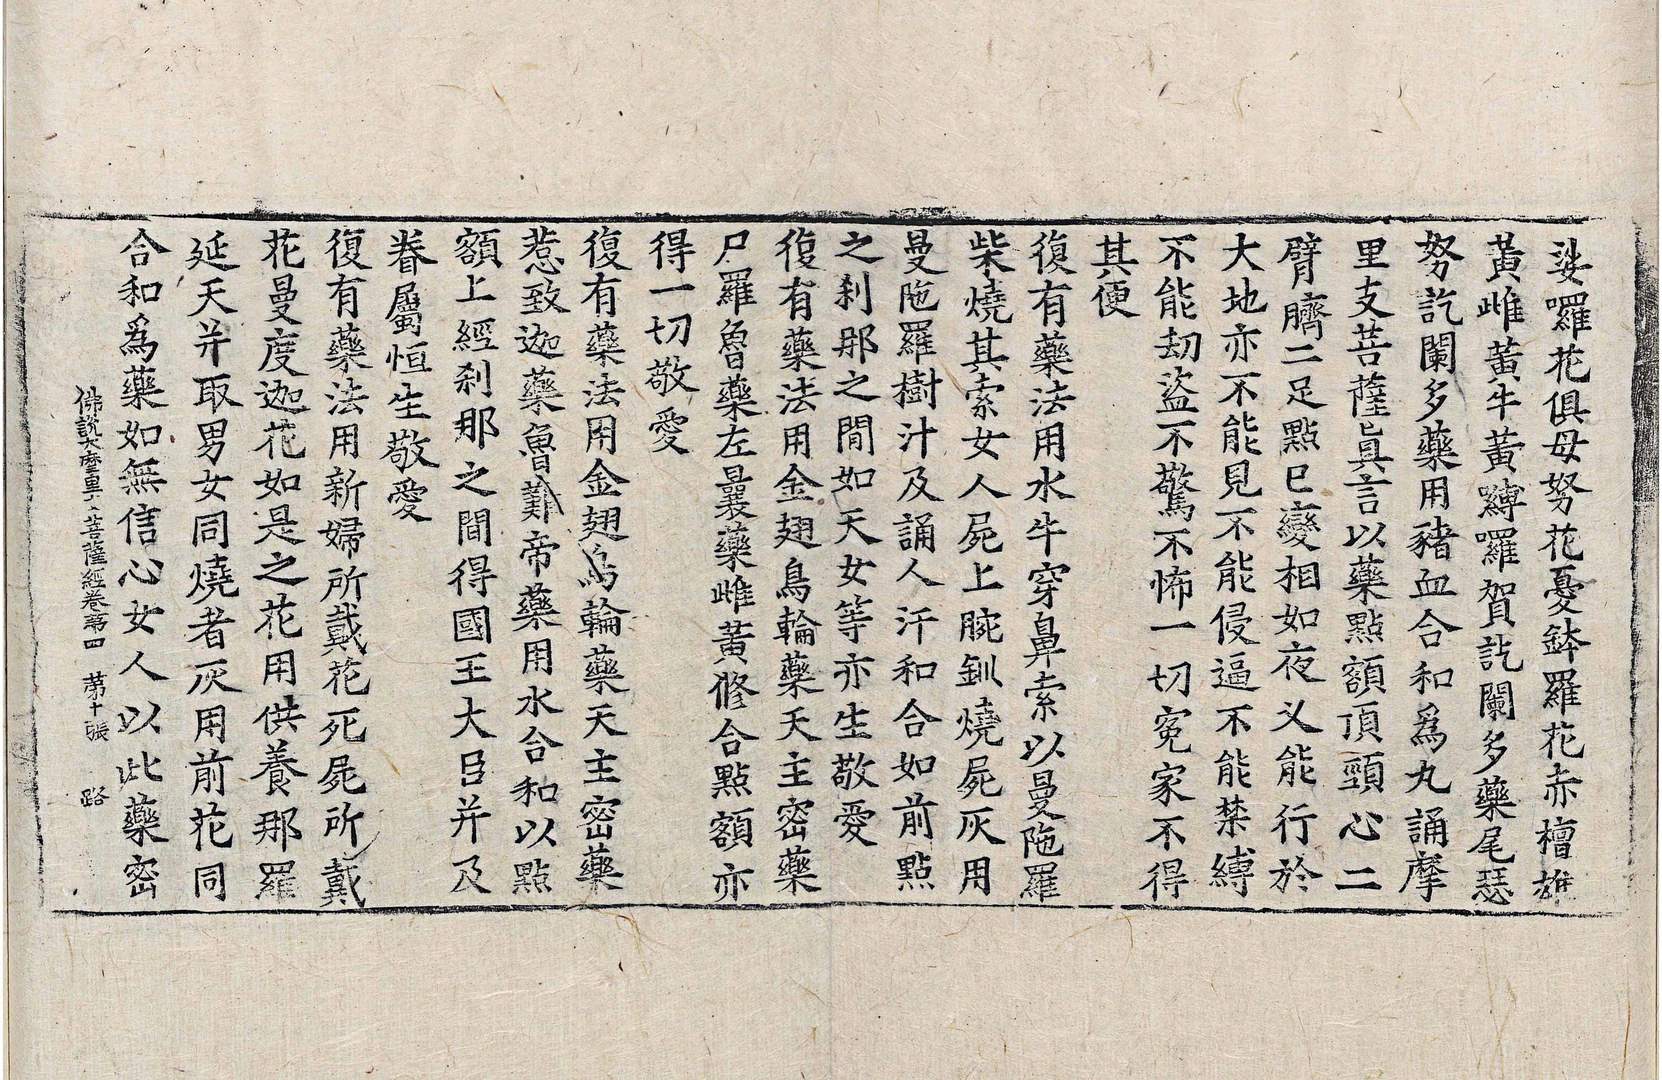 娑囉花俱母努花憂鉢羅花赤檀雄
黃雌黃牛黃嚩囉賀訖闌多藥尾瑟
努訖闌多藥用豬血合和爲丸誦摩
里支菩薩真言以藥點額頂頸心二
臂臍二足點巳變相如夜叉能行於
大地亦不能見不能侵逼不能禁縛
不能劫盜不驚不怖一切寃家不得
其便
復有藥法用水牛穿鼻索以曼陁羅
柴燒其索女人屍上腕釧燒屍灰用
曼陁羅樹汁及誦人汗和合如前點
之刹那之間如天女等亦生敬愛
復有藥法用金翅鳥輪藥天主密藥
尸羅魯藥左曩藥雌黃修合點額亦
得一切敬愛
復有藥法用金翅鳥輪藥天主密藥
惹致迦藥魯難帝藥用水合和以點
額上經刹那之間得國王大臣并及
眷屬恒生敬愛
復有藥法用新婦所戴花死屍所戴
花曼度迦花如是之花用供養那羅
延天并取男女同燒者灰用前花同
合和爲藥如無信心女人以此藥密
佛說大摩里支菩薩經卷第四 第十張 路